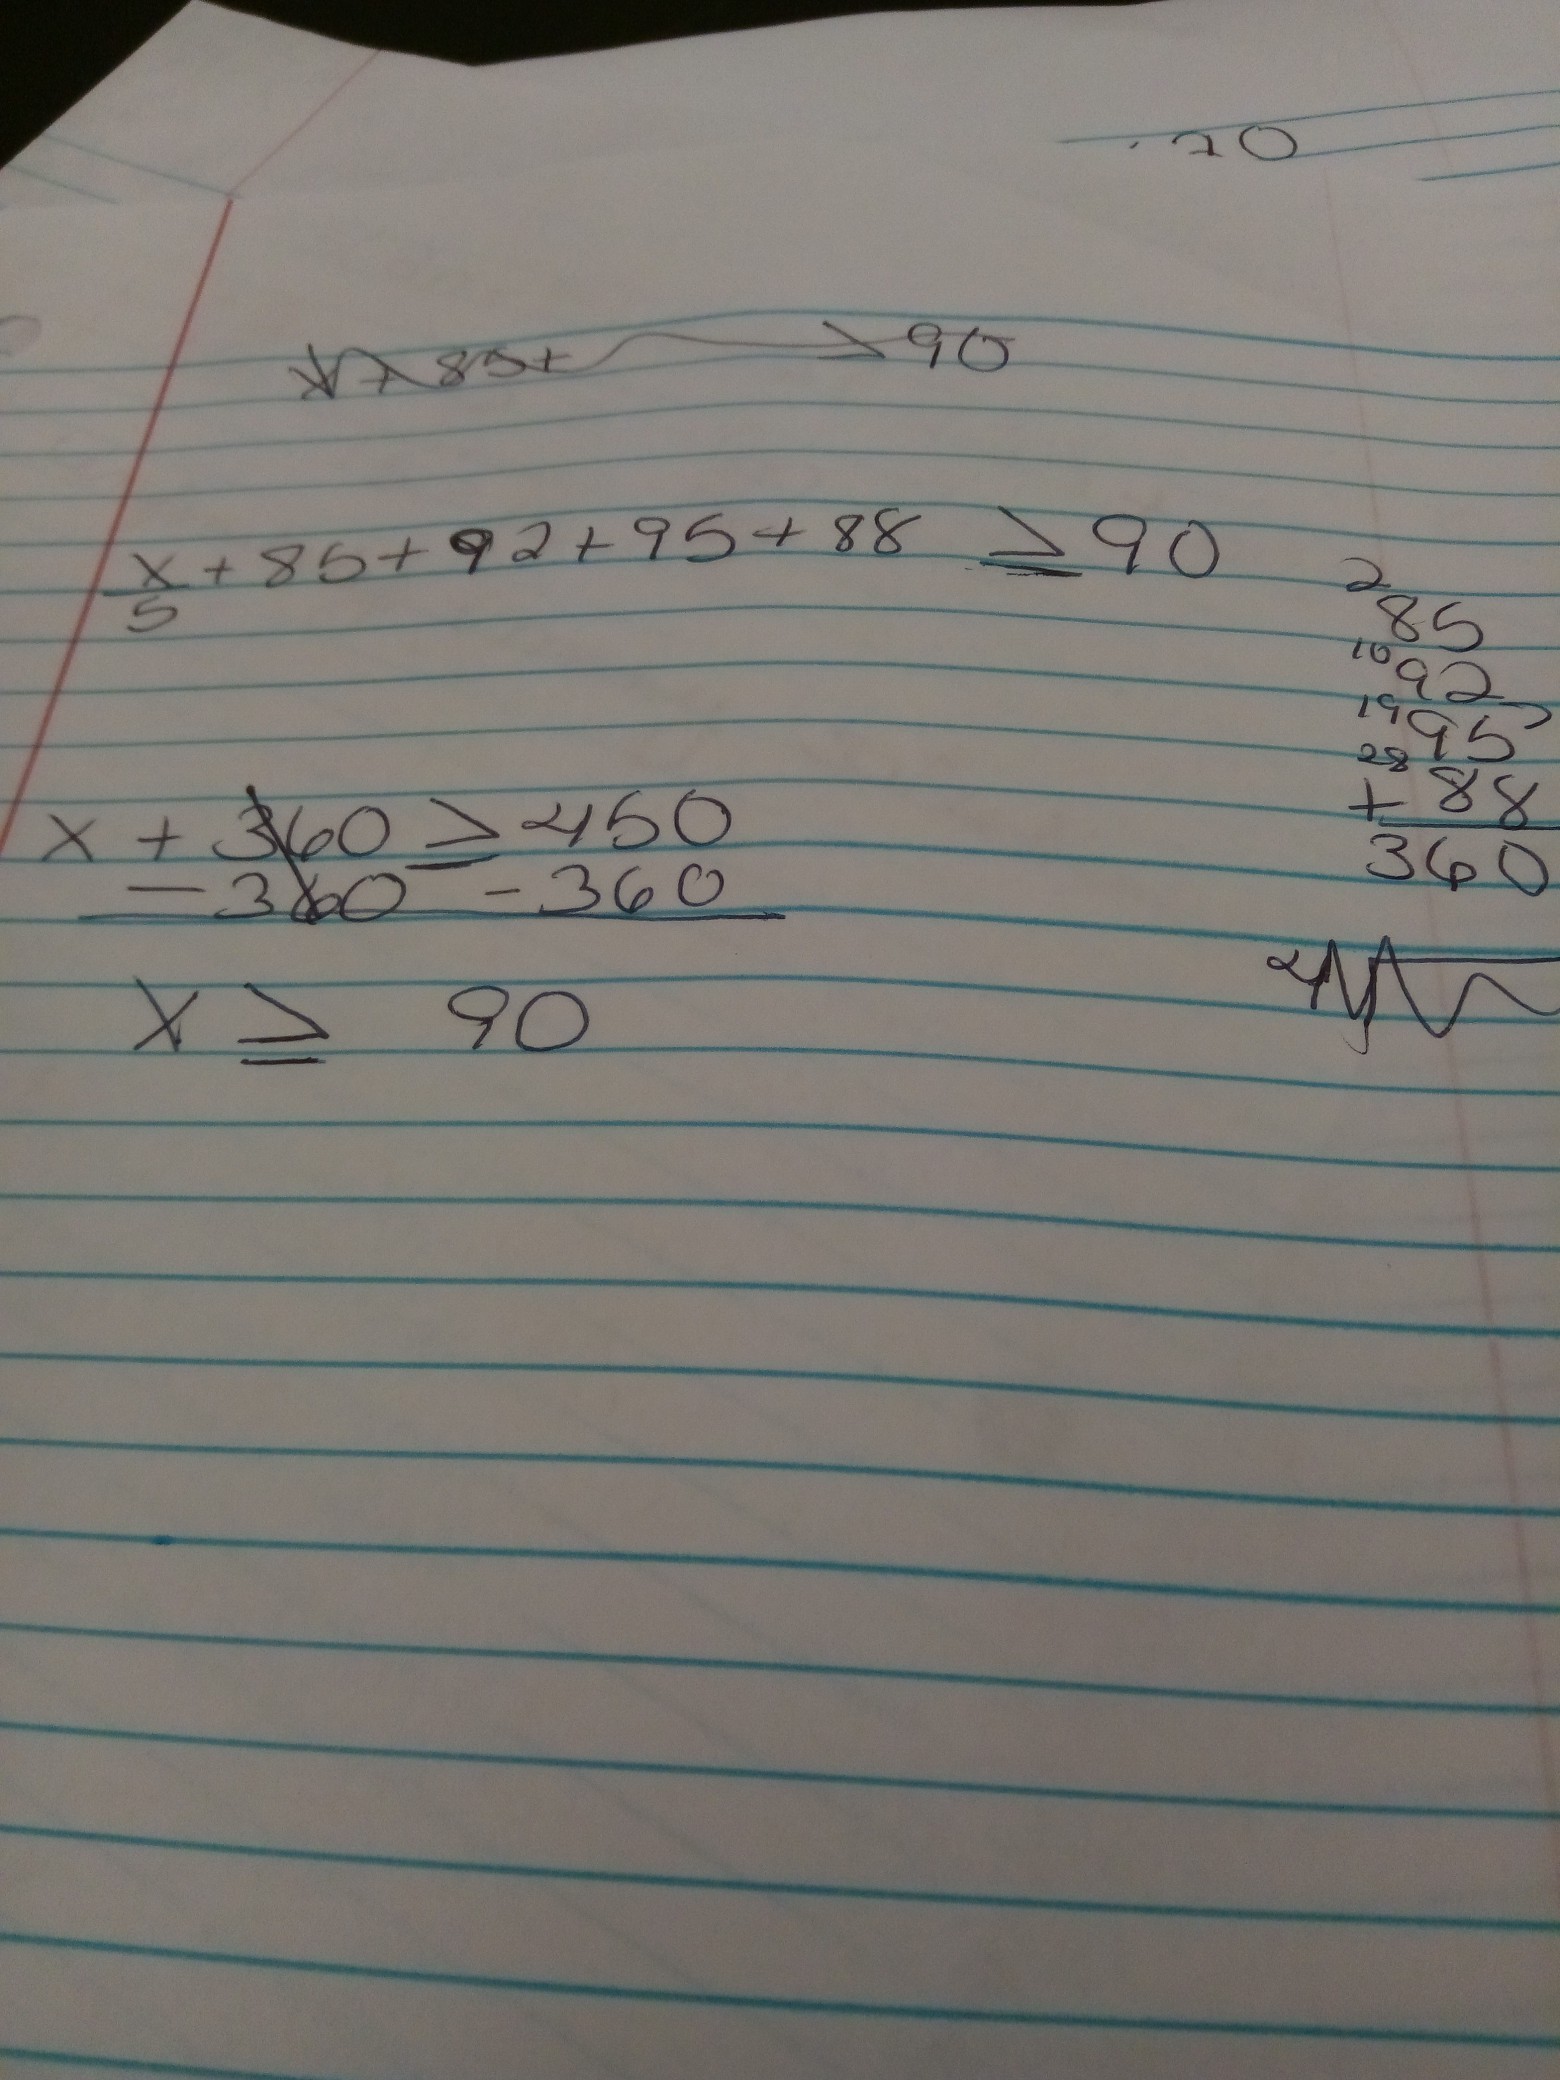 70
85+ > 90
x/5 + 85 + 92 + 95 + 88 ≥ 90
2
85
10 92
19 95
28
+ 88
360
x + 360 ≥ 450
- 360 - 360
x ≥ 90